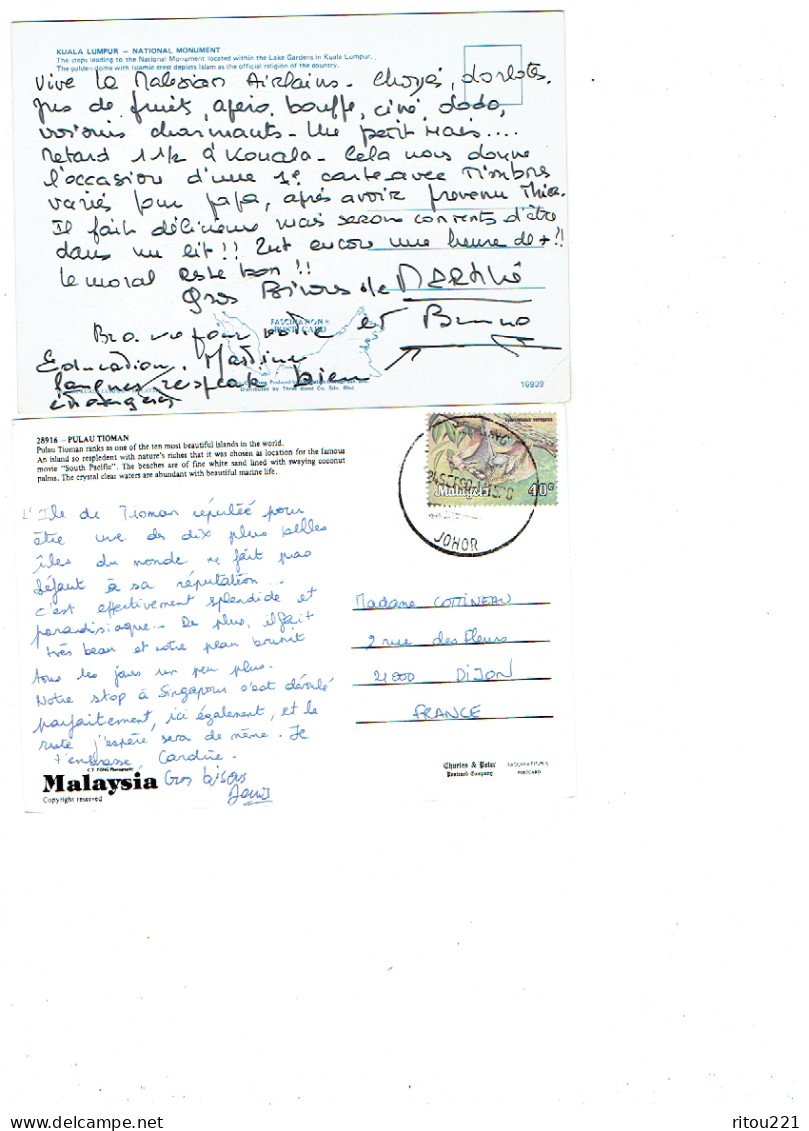 KUALA LUMPUR – NATIONAL MONUMENT
The steps leading to the National Monument located within the Lake Gardens in Kuala Lumpur.
The golden dome with Islamic crest depicts Islam as the official religion of the country.
Vive la Malesian Airlains. Choyés, dorlotés,
jus de fruits, apéro, bouffe, ciné, dodo,
voisins charmants. Un petit mais....
Retard 1 1/2 à Kouala. Cela nous donne
l'occasion d'une 1e carte avec Timbres
variés pour papa, après avoir prévenu
Il fait délicieux mais serons contents d'être
dans un lit!! Zut encore une heure de +!!
Le moral est bon!!
Gros Bisous de
et Bruno
FASCINATION
POSTCARD
Bravo pour votre
Education. Martine
langues respecte bien
étrangères
16939
28916 – PULAU TIOMAN
Pulau Tioman ranks as one of the ten most beautiful islands in the world.
An island so resplendent with nature's riches that it was chosen as location for the famous
movie "South Pacific". The beaches are of fine white sand lined with swaying coconut
palms. The crystal clear waters are abundant with beautiful marine life.
Malaysia 40¢
JOHOR
L'Ile de Tioman réputée pour
être une des dix plus belles
îles du monde ne fait pas
défaut à sa réputation...
c'est effectivement splendide et
paradisiaque... De plus, il fait
très beau et notre peau brunit
tous les jours un peu plus.
Notre stop à Singapour s'est déroulé
parfaitement, ici également, et le
reste j'espère sera de même. Je
t'embrasse, Caroline.
Gros bisous
Madame COTTINEAU
2 rue des Fleurs
21000 DIJON
FRANCE
C.Y. FONG Photography
Malaysia
Copyright reserved
Charles & Peter
Postcard Company
FASCINATION'S
POSTCARD
ritou221